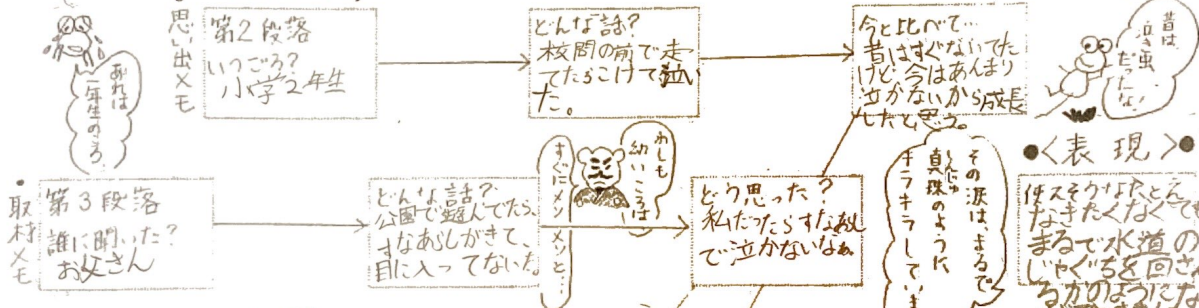 思い出メモ
あれは
一年生のころ
第2段落
いつごろ?
小学2年生
どんな話?
校門の前で走
てたらこけて泣い
た。
今と比べて…
昔はすぐないてた
けど、今はあんまり
泣かないから成長
したと思う。
昔は
泣き虫
だったな
●<表現>●
取材メモ
第3段落
誰に聞いた?
お父さん
どんな話?
公園で遊んでたら、
すなあらしがきて、
目に入ってないた。
わしも
幼いころは
すぐにメソメソと…
どう思った?
私だったらすなあらし
で泣かないなぁ
その涙は、まるで
真珠のように
しんじゅ
キラキラしていま
使えそうなたとえ
なきたくなくて
まるで水道の
じゃぐちを回さ
るかのようにた